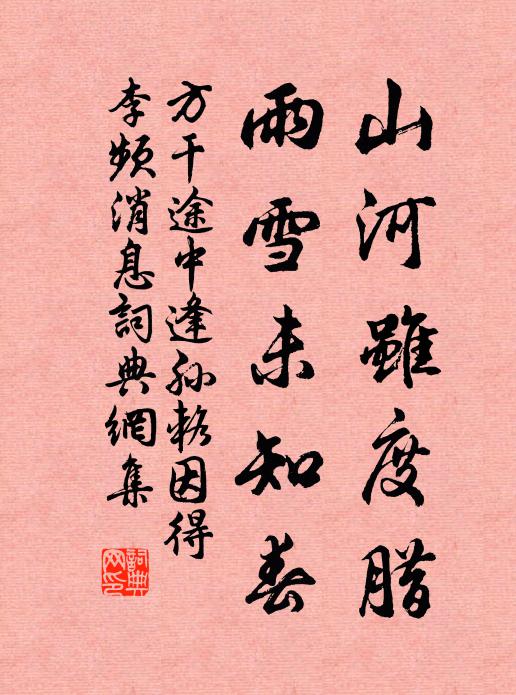 山河雖度腊
雨雪未知春
方干途中逢孫輅因得
李频消息詞典網集
詞典網印